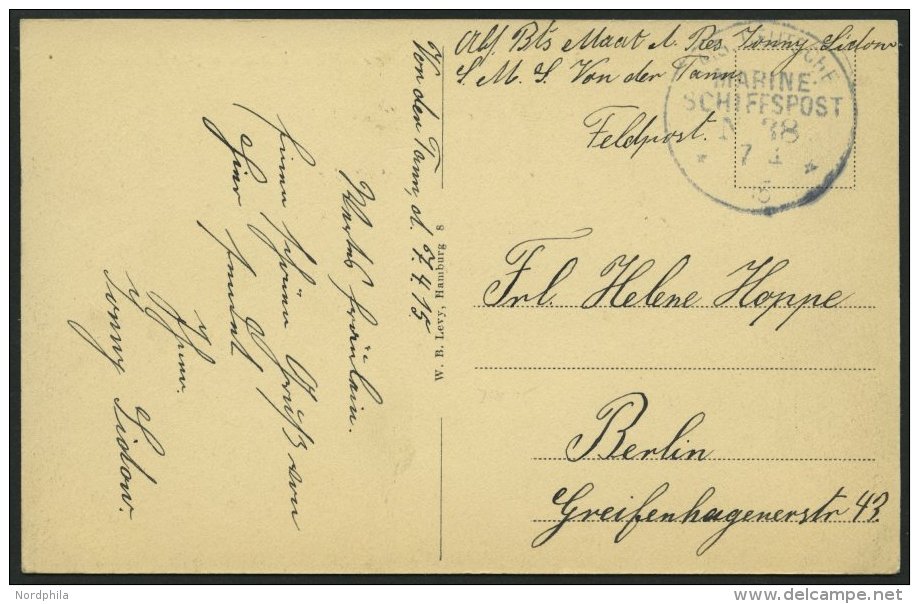 Abs. Bts Maat d. Res Jonny Sidow
S. M. S. Von der Tann
Feldpost.
DEUTSCHE
MARINE-
SCHIFFSPOST
N 38
7 4
Frl. Helene Hoppe
Berlin
Greifenhagenerstr 43.
W. B. Levy, Hamburg 8
Von der Tann, d. 7.4.15
Wertes Fräulein.
Einen schönen Gruß von
Hier sendet
Ihnen.
Jonny Sidow.
Nordphila
delcampe.net